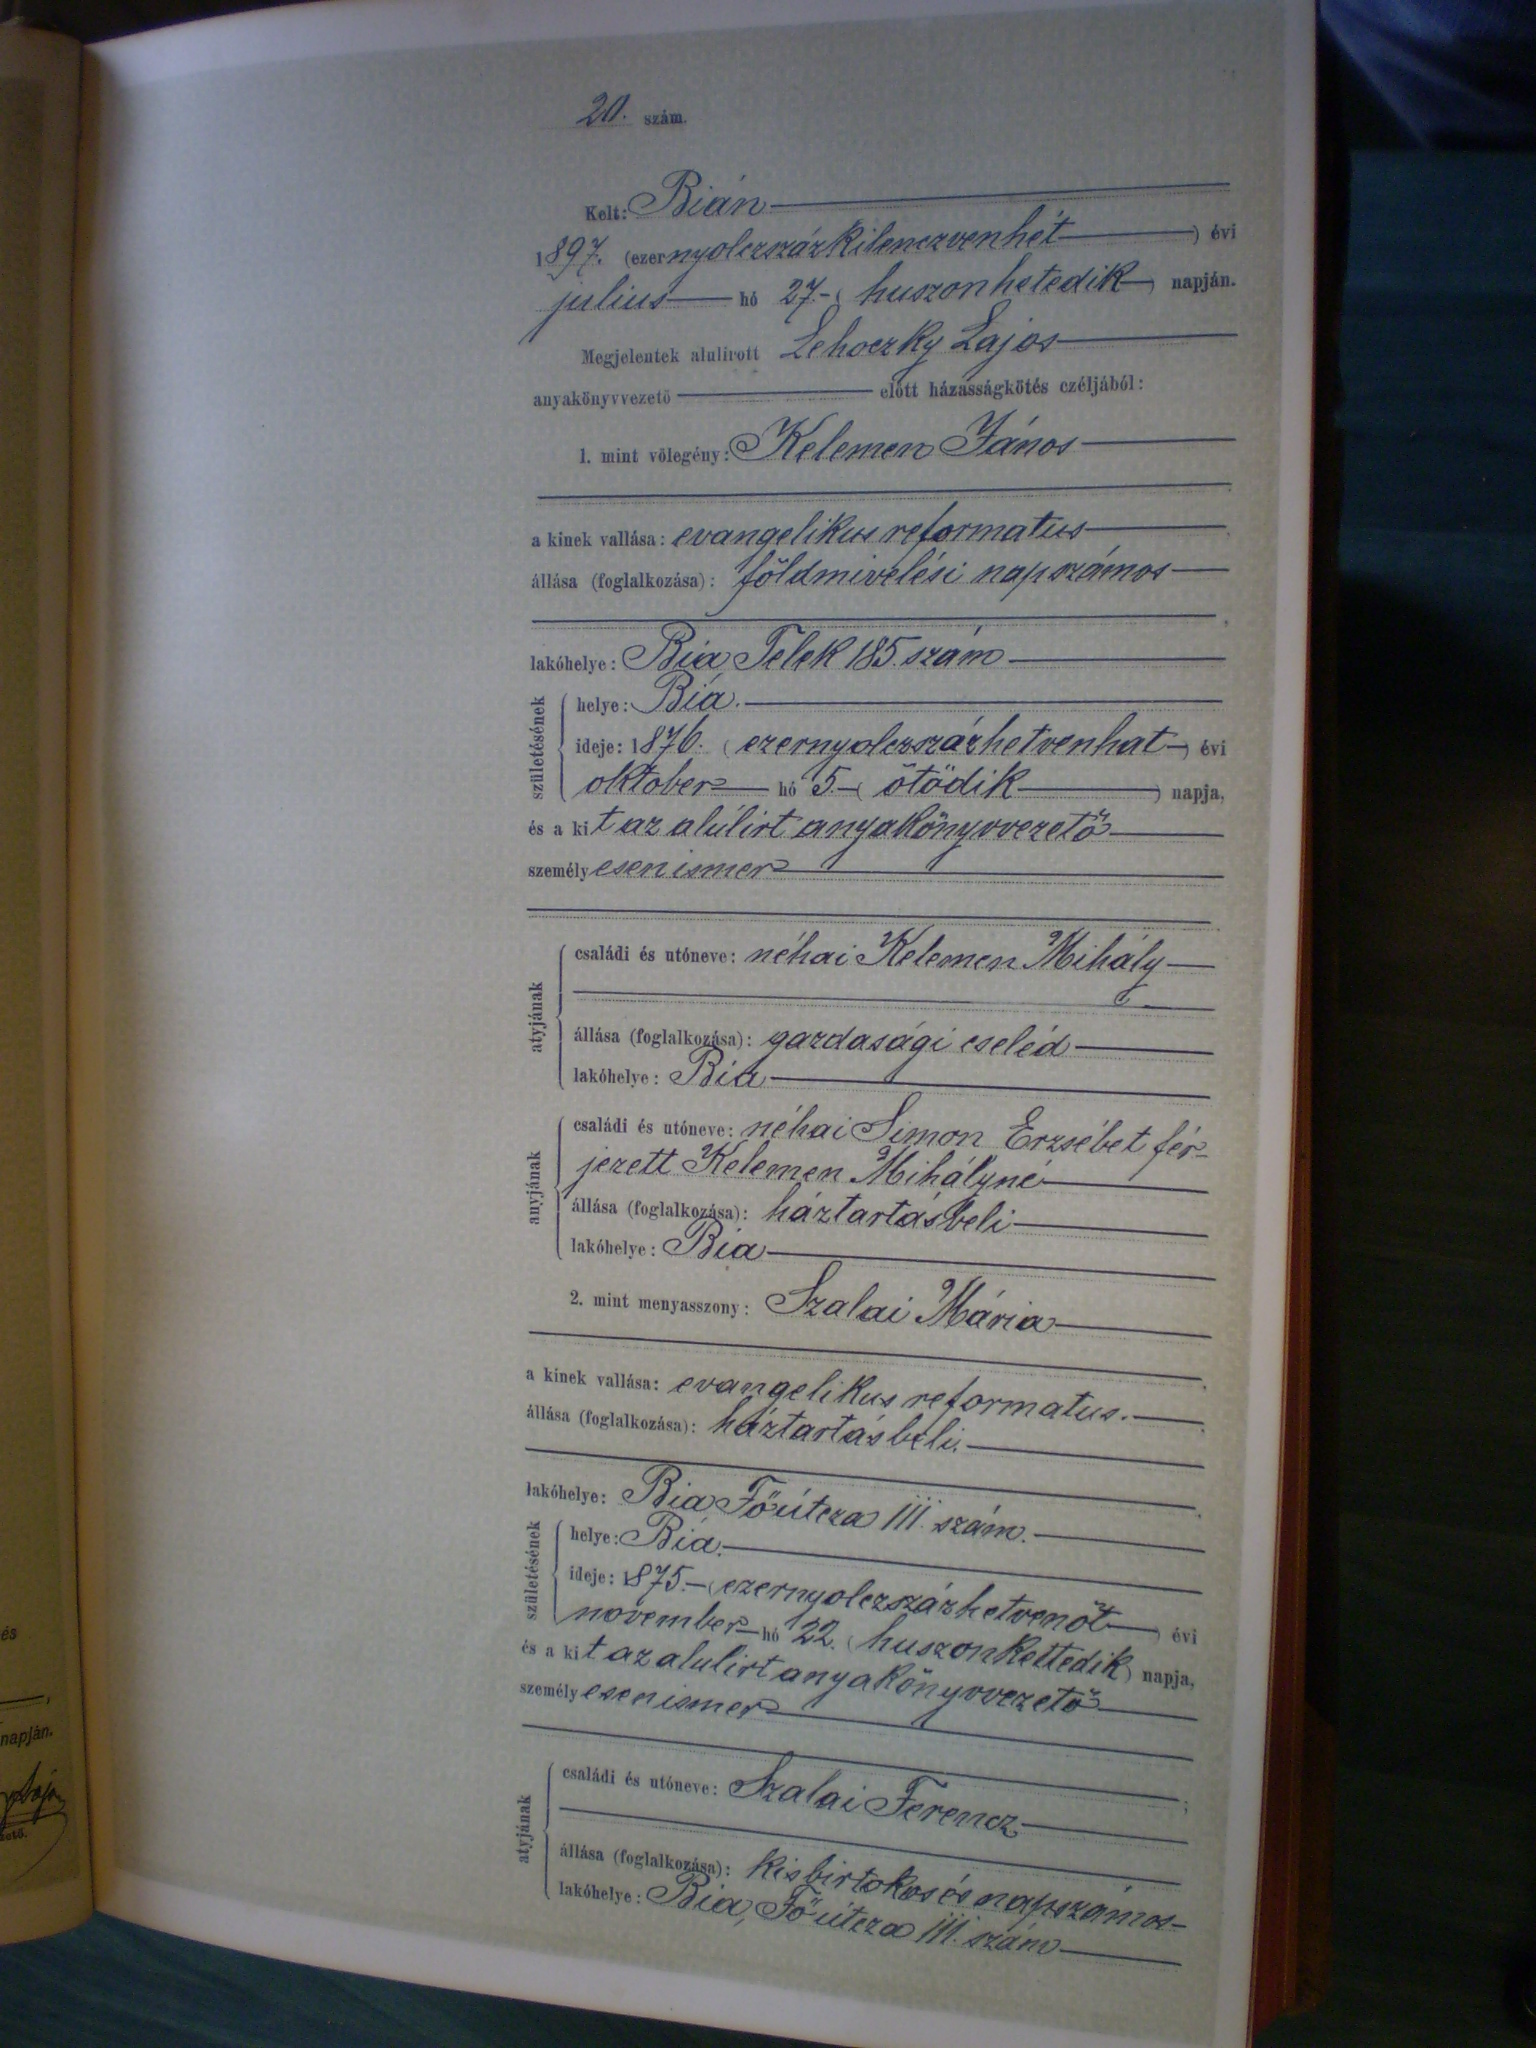 20. szám.
Kelt: Bián
1897. (ezernyolczszázkilenczvenhét) évi
julius hó 27. (huszonhetedik) napján.
Megjelentek alulírott Lehoczky Lajos
anyakönyvvezető előtt házasságkötés czéljából:
1. mint völegény: Kelemen János
a kinek vallása: evangelikus reformatus
állása (foglalkozása): földmivelési napszámos
lakóhelye: Bia, Telek 185. szám
születésének
helye: Bia.
ideje: 1876. (ezernyolczszázhetvenhat) évi
oktober hó 5. (ötödik) napja,
és a kit az alúlirt anyakönyvvezető
személyesen ismer
atyjának
családi és utóneve: néhai Kelemen Mihály
állása (foglalkozása): gazdasági cseléd
lakóhelye: Bia
anyjának
családi és utóneve: néhai Simon Erzsébet fér-
jezett Kelemen Mihályné
állása (foglalkozása): háztartásbeli
lakóhelye: Bia
2. mint menyasszony: Szalai Mária
a kinek vallása: evangelikus reformatus.
állása (foglalkozása): háztartásbeli.
lakóhelye: Bia Főútcza 111. szám.
születésének
helye: Bia.
ideje: 1875. (ezernyolczszázhetvenöt) évi
november hó 22. (huszonkettedik) napja,
és a kit az alulirt anyakönyvvezető
személyesen ismer
atyjának
családi és utóneve: Szalai Ferencz
állása (foglalkozása): kisbirtokos és napszámos
lakóhelye: Bia, Főútcza 111. szám
és
napján.